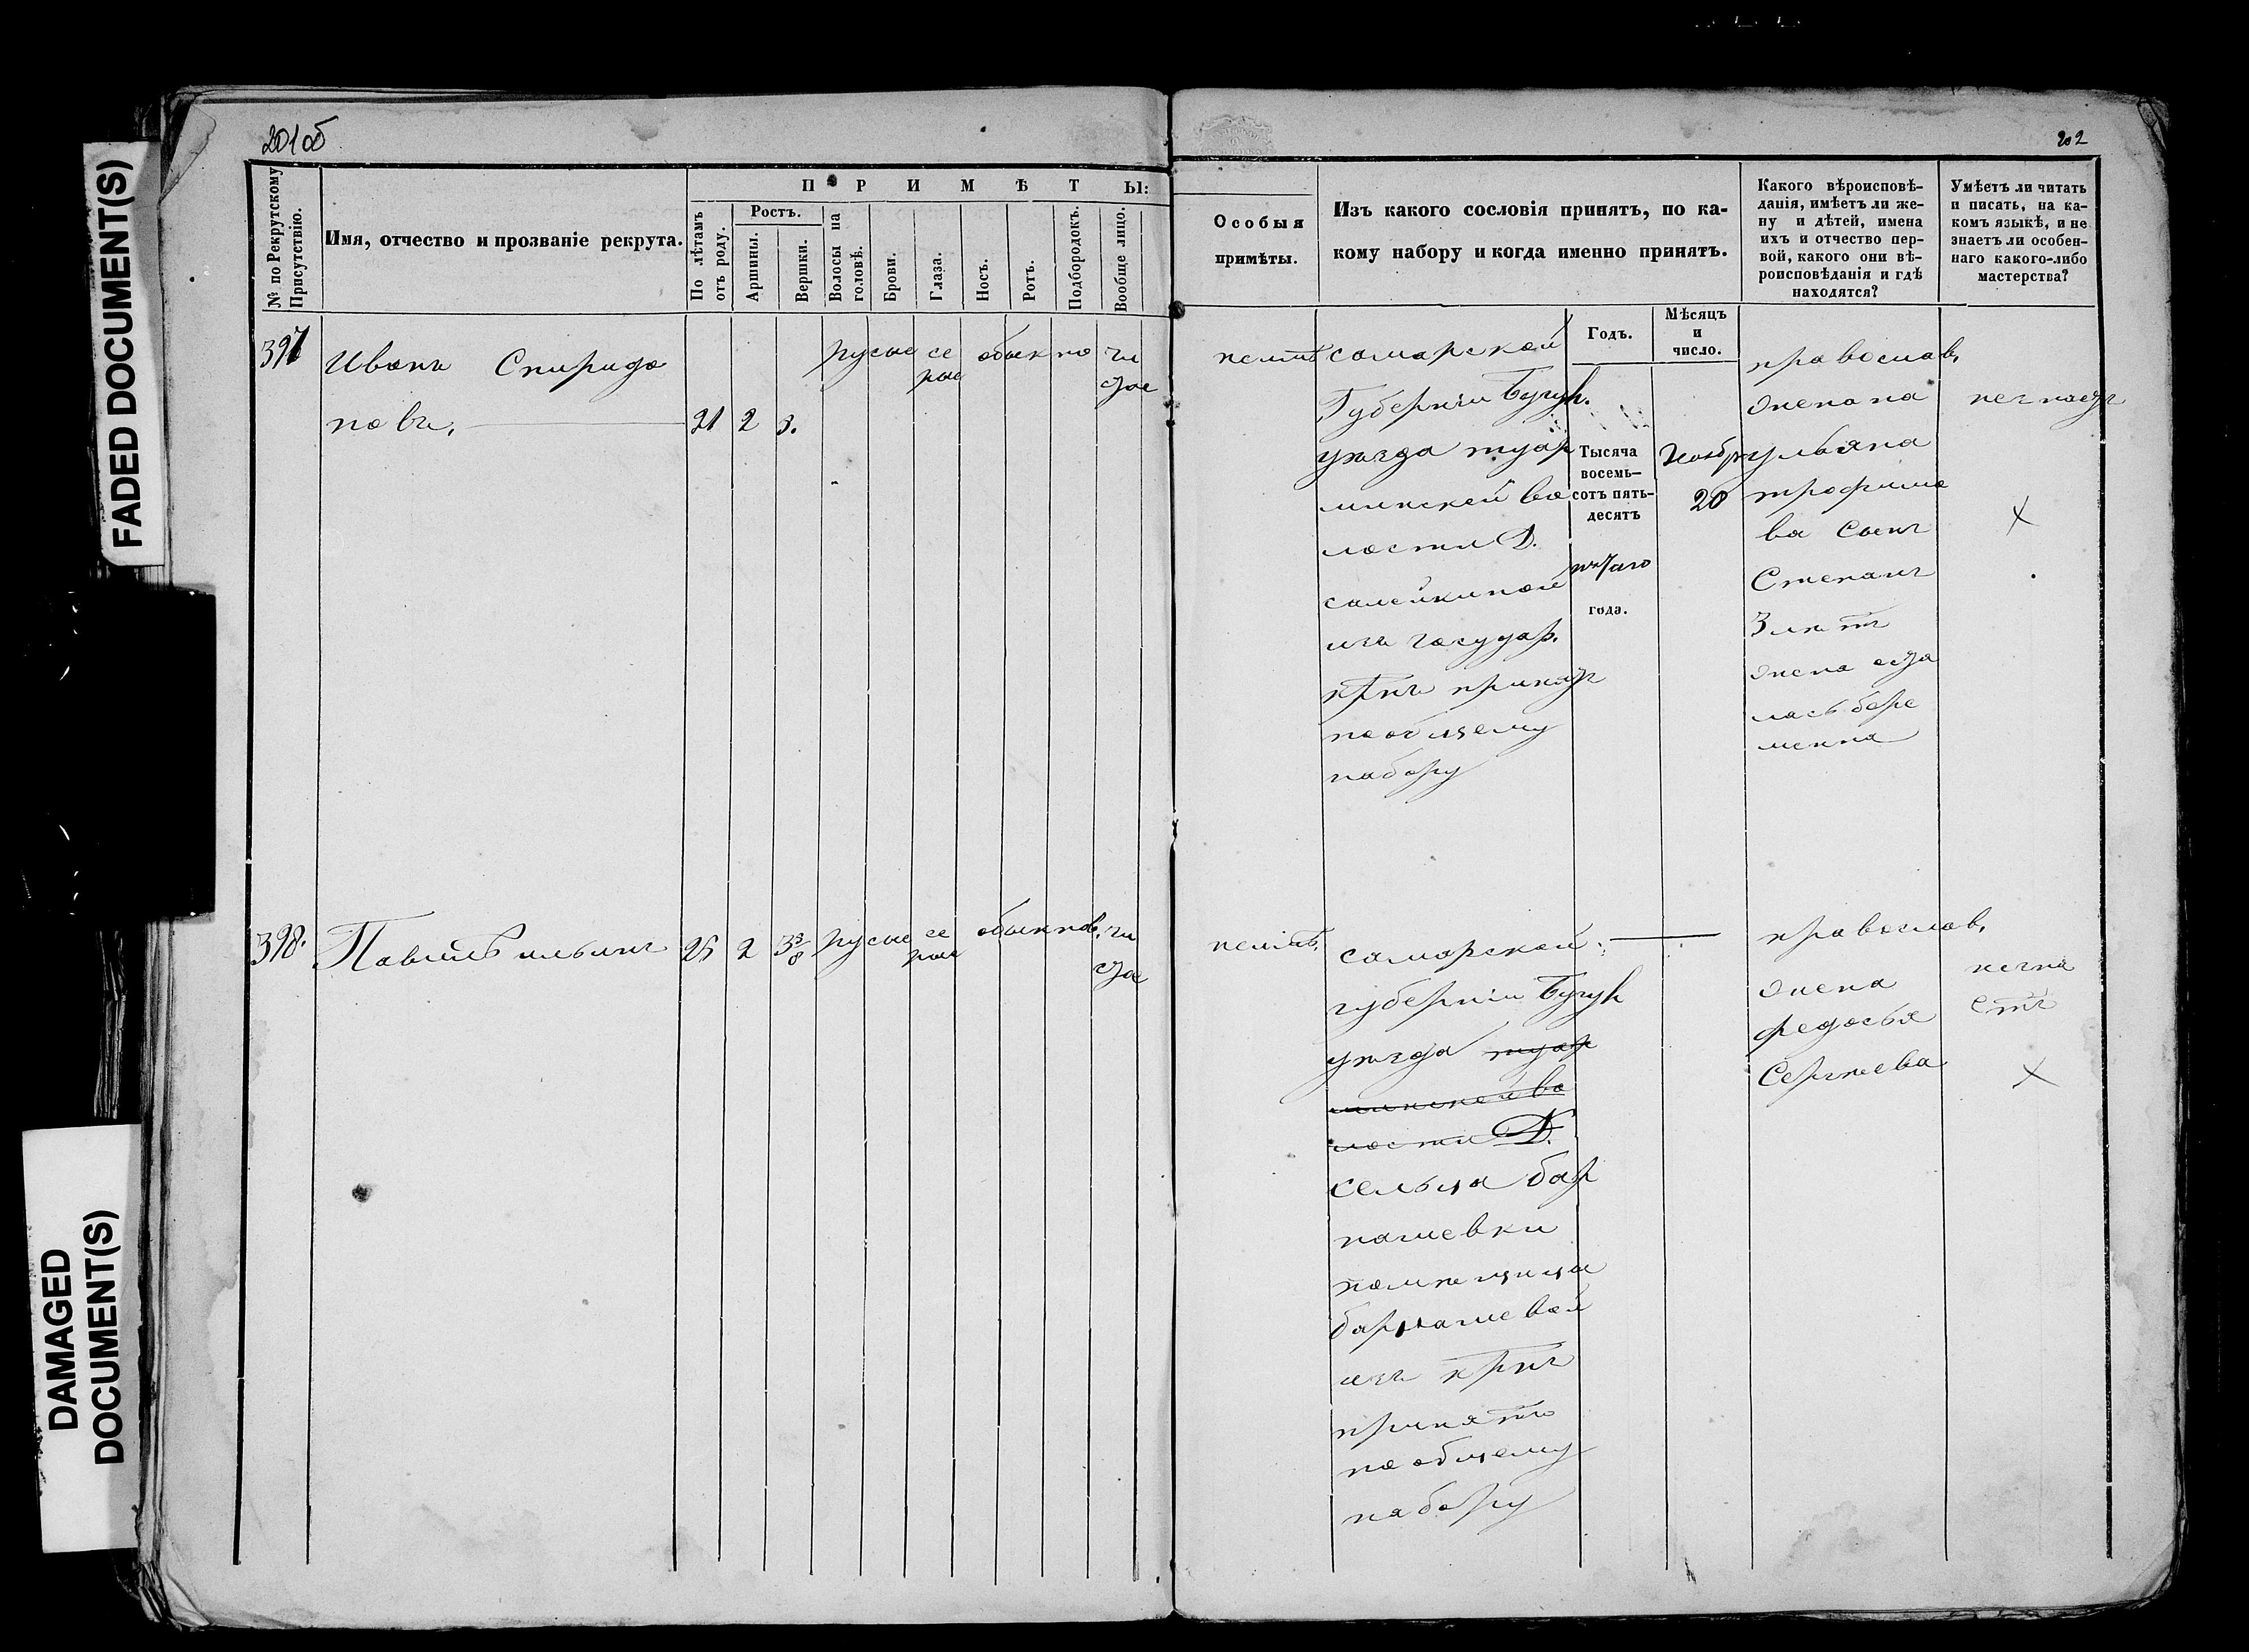 FADED DOCUMENT(S)
DAMAGED
DOCUMENT(S)
201об
202
П Р И М Ѣ Т Ы:
№ по Рекрутскому
Присутствію.
Имя, отчество и прозваніе рекрута.
По лѣтамъ
отъ роду.
Ростъ.
Аршины.
Вершки.
Волосы на
головѣ.
Брови.
Глаза.
Носъ.
Ротъ.
Подбородокъ.
Вообще лицо.
Особыя
примѣты.
Изъ какого сословія принятъ, по ка-
кому набору и когда именно принятъ.
Какого вѣроисповѣ-
данія, имѣетъ ли же-
ну и дѣтей, имена
ихъ и отчество пер-
вой, какого они вѣ-
роисповѣданія и гдѣ
находятся?
Умѣетъ ли читать
и писать, на ка-
комъ языкѣ, и не
знаетъ ли особен-
наго какого-либо
мастерства?
Годъ.
Мѣсяцъ
и
число.
397
Иванъ Спиридо
новъ.
21 2 3.
русые
се
рые
обыкно
чи
стое
неимѣ
самарской
Губерніи Бугул.
уѣзда туар
минской во
лости Д.
салейкиной
изъ государ.
крѣнъ принятъ
пообщему
набору
Тысяча
восемь-
сотъ пять-
десятъ
пятаго
года.
Ноябр
20
православ.
женана
ульяна
трофимо
ва сынъ
Степанъ
3 лѣтъ
жена оста
лась бере
менна
незнаетъ
х
398.
Павелъ ильинъ
25 2 3 3/8
русые
се
рые
обыкнов.
чи
стое
неимѣ.
самарской
губерніи Бугул
уѣзда туар
минской во
лости Д.
сельца бар
нашевки
помѣщицы
барнашевой
изъ крѣнъ
принятъ
по общему
набору
православ.
жена
федосья
Сергѣева
незна
етъ
х